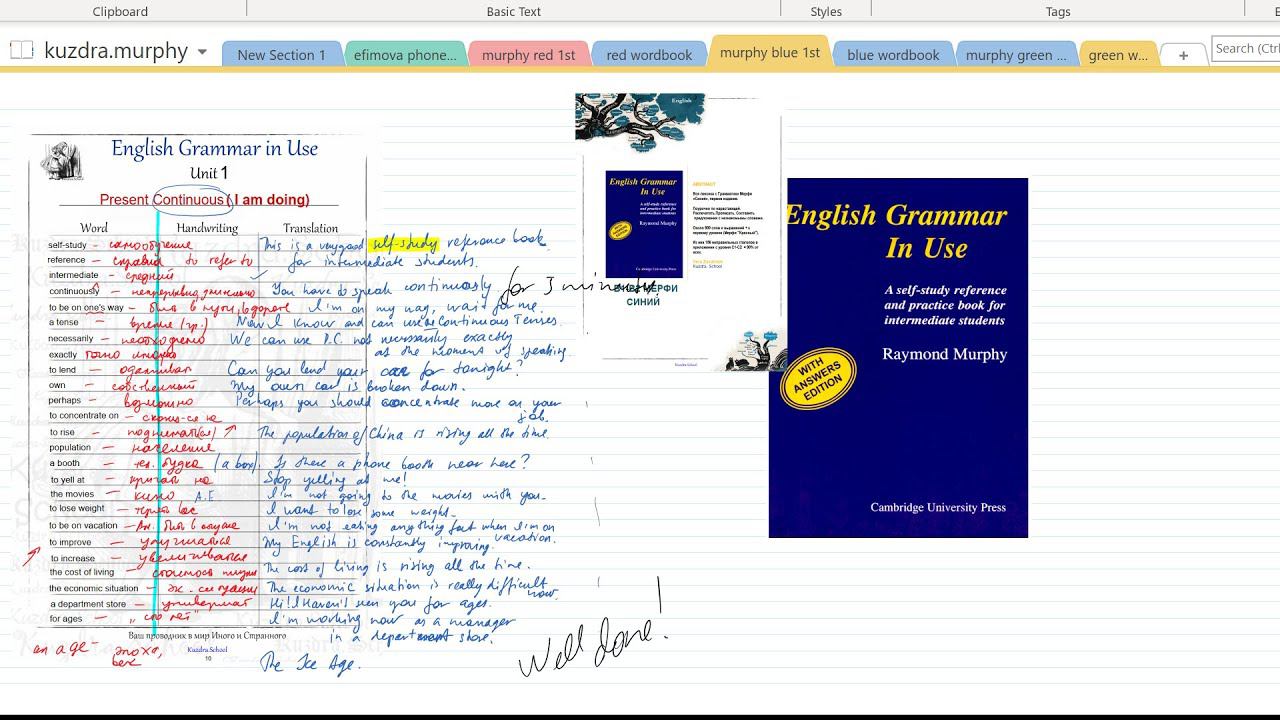 Clipboard
Basic Text
Styles
Tags
kuzdra.murphy
New Section 1
efimova phone...
murphy red 1st
red wordbook
murphy blue 1st
blue wordbook
murphy green ...
green w...
+
Search (Ctrl
English Grammar in Use
Unit 1
Present Continuous (I am doing)
Word Handwriting Translation
self-study - самообучение This is a very good self-study reference book
reference - to refer to for intermediate students.
intermediate - средний
continuously - непрерывно, длительно You have to speak continuously for 3 minutes
to be on one's way - быть в пути, в дороге I'm on my way, wait for me.
a tense - время (гр.) Now I know and can use Continuous Tenses.
necessarily - необходимо We can use P.C. not necessarily exactly
exactly точно именно at the moment of speaking.
to lend - одалживать Can you lend your car for tonight?
own - собственный My own car is broken down.
perhaps - возможно Perhaps you should concentrate more on your
to concentrate on - job.
to rise - подниматься The population of China is rising all the time.
population - население
a booth - тел. будка (a box). Is there a phone booth near here?
to yell at - кричать на Stop yelling at me!
the movies - кино A.E. I'm not going to the movies with you.
to lose weight - терять вес I want to lose some weight.
to be on vacation - быть в отпуске I'm not eating anything fat when I'm on
to improve - улучшаться My English is constantly improving. vacation.
to increase - увеличиваться
the cost of living - стоимость жизни The cost of living is rising all the time.
the economic situation - эк. ситуация The economic situation is really difficult
now.
a department store - универмаг Hi! I Haven't seen you for ages.
for ages - "сто лет" I'm working now as a manager
in a department store.
Ваш проводник в мир Иного и Странного
Kuzdra.School
10
an age - эпоха,
век
The Ice Age.
Well done!
English
English Grammar
In Use
A self-study reference
and practice book for
intermediate students
Raymond Murphy
Cambridge University Press
ABSTRACT
Kuzdra. School
СИНИЙ
Kuzdra.School
English Grammar
In Use
A self-study reference
and practice book for
intermediate students
Raymond Murphy
WITH
ANSWERS
EDITION
Cambridge University Press